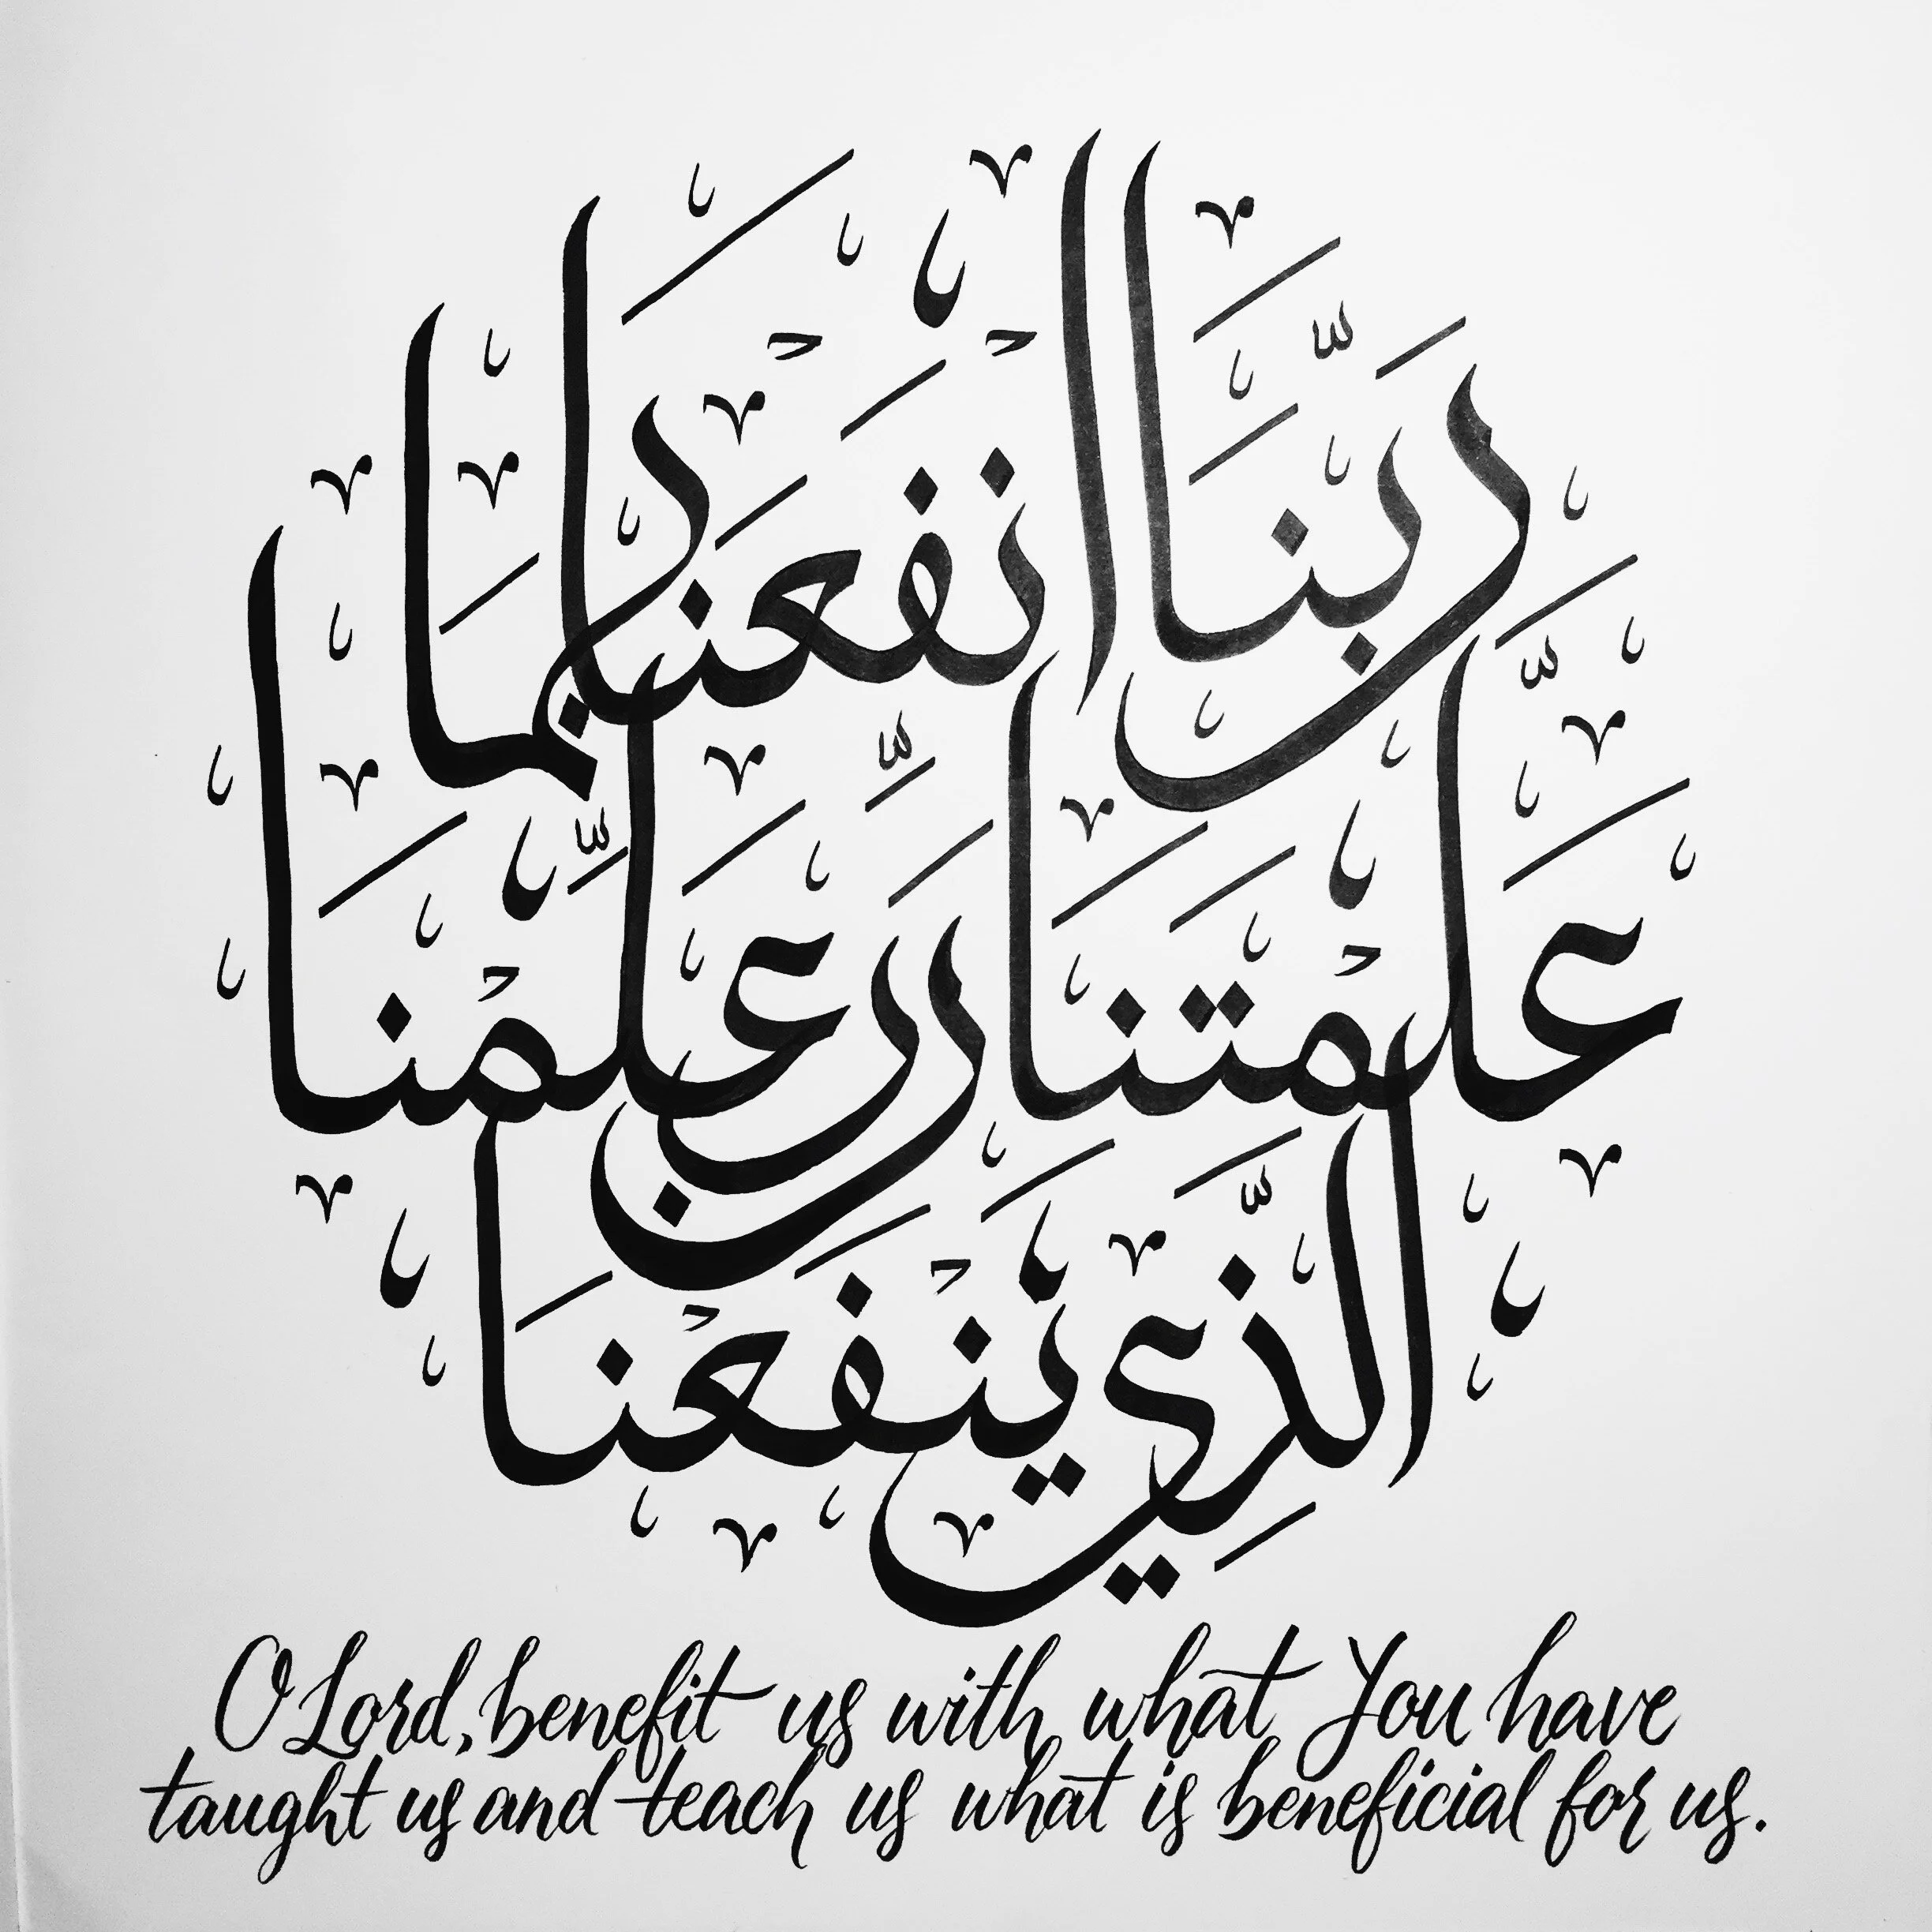 رَبَّنَا انْفَعْنَا بِمَا
عَلَّمْتَنَا رَبِّ عَلِّمْنَا
الَّذِي يَنْفَعْنَا
O Lord, benefit us with what You have
taught us and teach us what is beneficial for us.